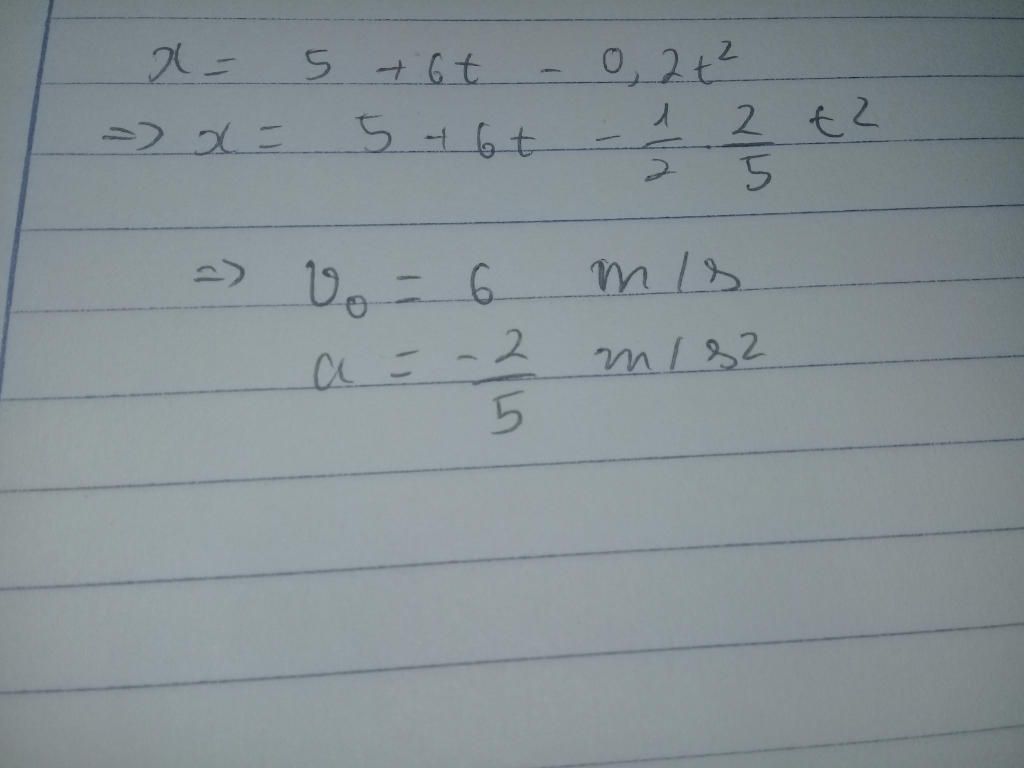 x = 5 + 6t - 0,2t²
=> x = 5 + 6t - 1/2 . 2/5 t²
=> v₀ = 6 m/s
a = -2/5 m/s²